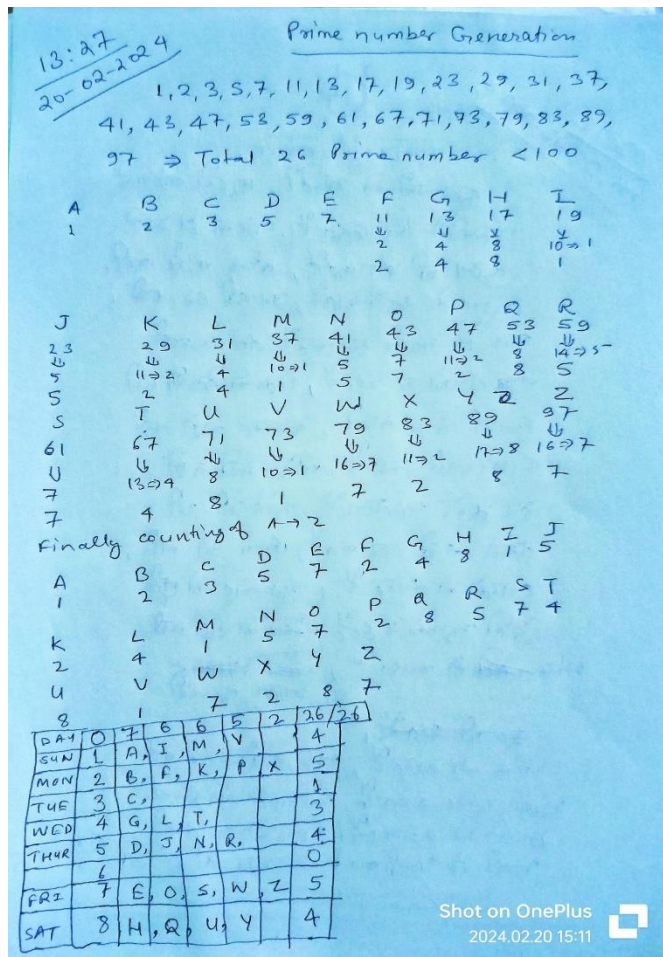 13:27
20-02-2024
Prime number Generation
1, 2, 3, 5, 7, 11, 13, 17, 19, 23, 29, 31, 37,
41, 43, 47, 53, 59, 61, 67, 71, 73, 79, 83, 89,
97 ⇒ Total 26 Prime number <100
A B C D E F G H I
1 2 3 5 7 11 13 17 19
⇓ ⇓ ⇓ ⇓
2 4 8 10⇒1
2 4 8 1
J K L M N O P Q R
23 29 31 37 41 43 47 53 59
⇓ ⇓ ⇓ ⇓ ⇓ ⇓ ⇓ ⇓ ⇓
5 11⇒2 4 10⇒1 5 7 11⇒2 8 14⇒5
5 2 4 1 5 7 2 8 5
S T U V W X Y Z
61 67 71 73 79 83 89 97
⇓ ⇓ ⇓ ⇓ ⇓ ⇓ ⇓ ⇓
7 13⇒4 8 10⇒1 16⇒7 11⇒2 17⇒8 16⇒7
7 4 8 1 7 2 8 7
Finally counting of A→Z
A B C D E F G H I J
1 2 3 5 7 2 4 8 1 5
K L M N O P Q R S T
2 4 1 5 7 2 8 5 7 4
U V W X Y Z
8 1 7 2 8 7
DAY 0 7 6 6 5 2 26/26
SUN 1 A, I, M, V 4
MON 2 B, F, K, P X 5
TUE 3 C, 1
WED 4 G, L, T, 3
THUR 5 D, J, N, R, 4
6 0
FRI 7 E, O, S, W, Z 5
SAT 8 H, Q, U, Y 4
Shot on OnePlus
2024.02.20 15:11